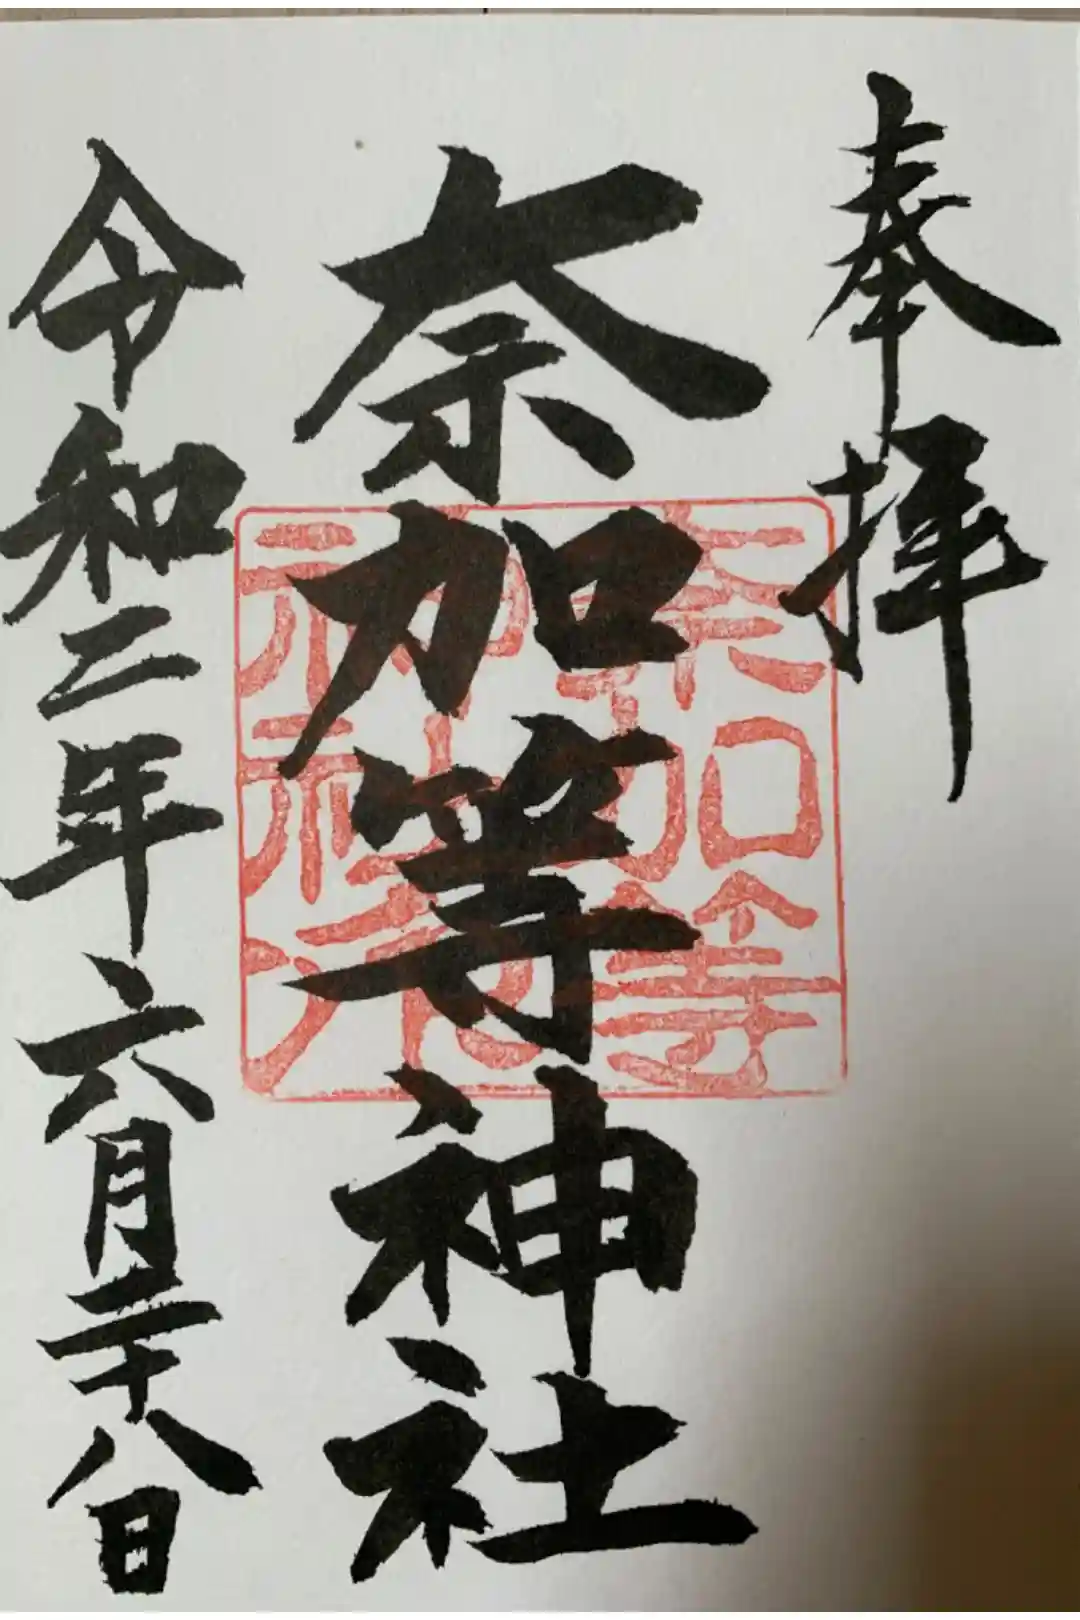 奉拝
奈加等神社
令和二年六月二十八日
奈加等
神社印